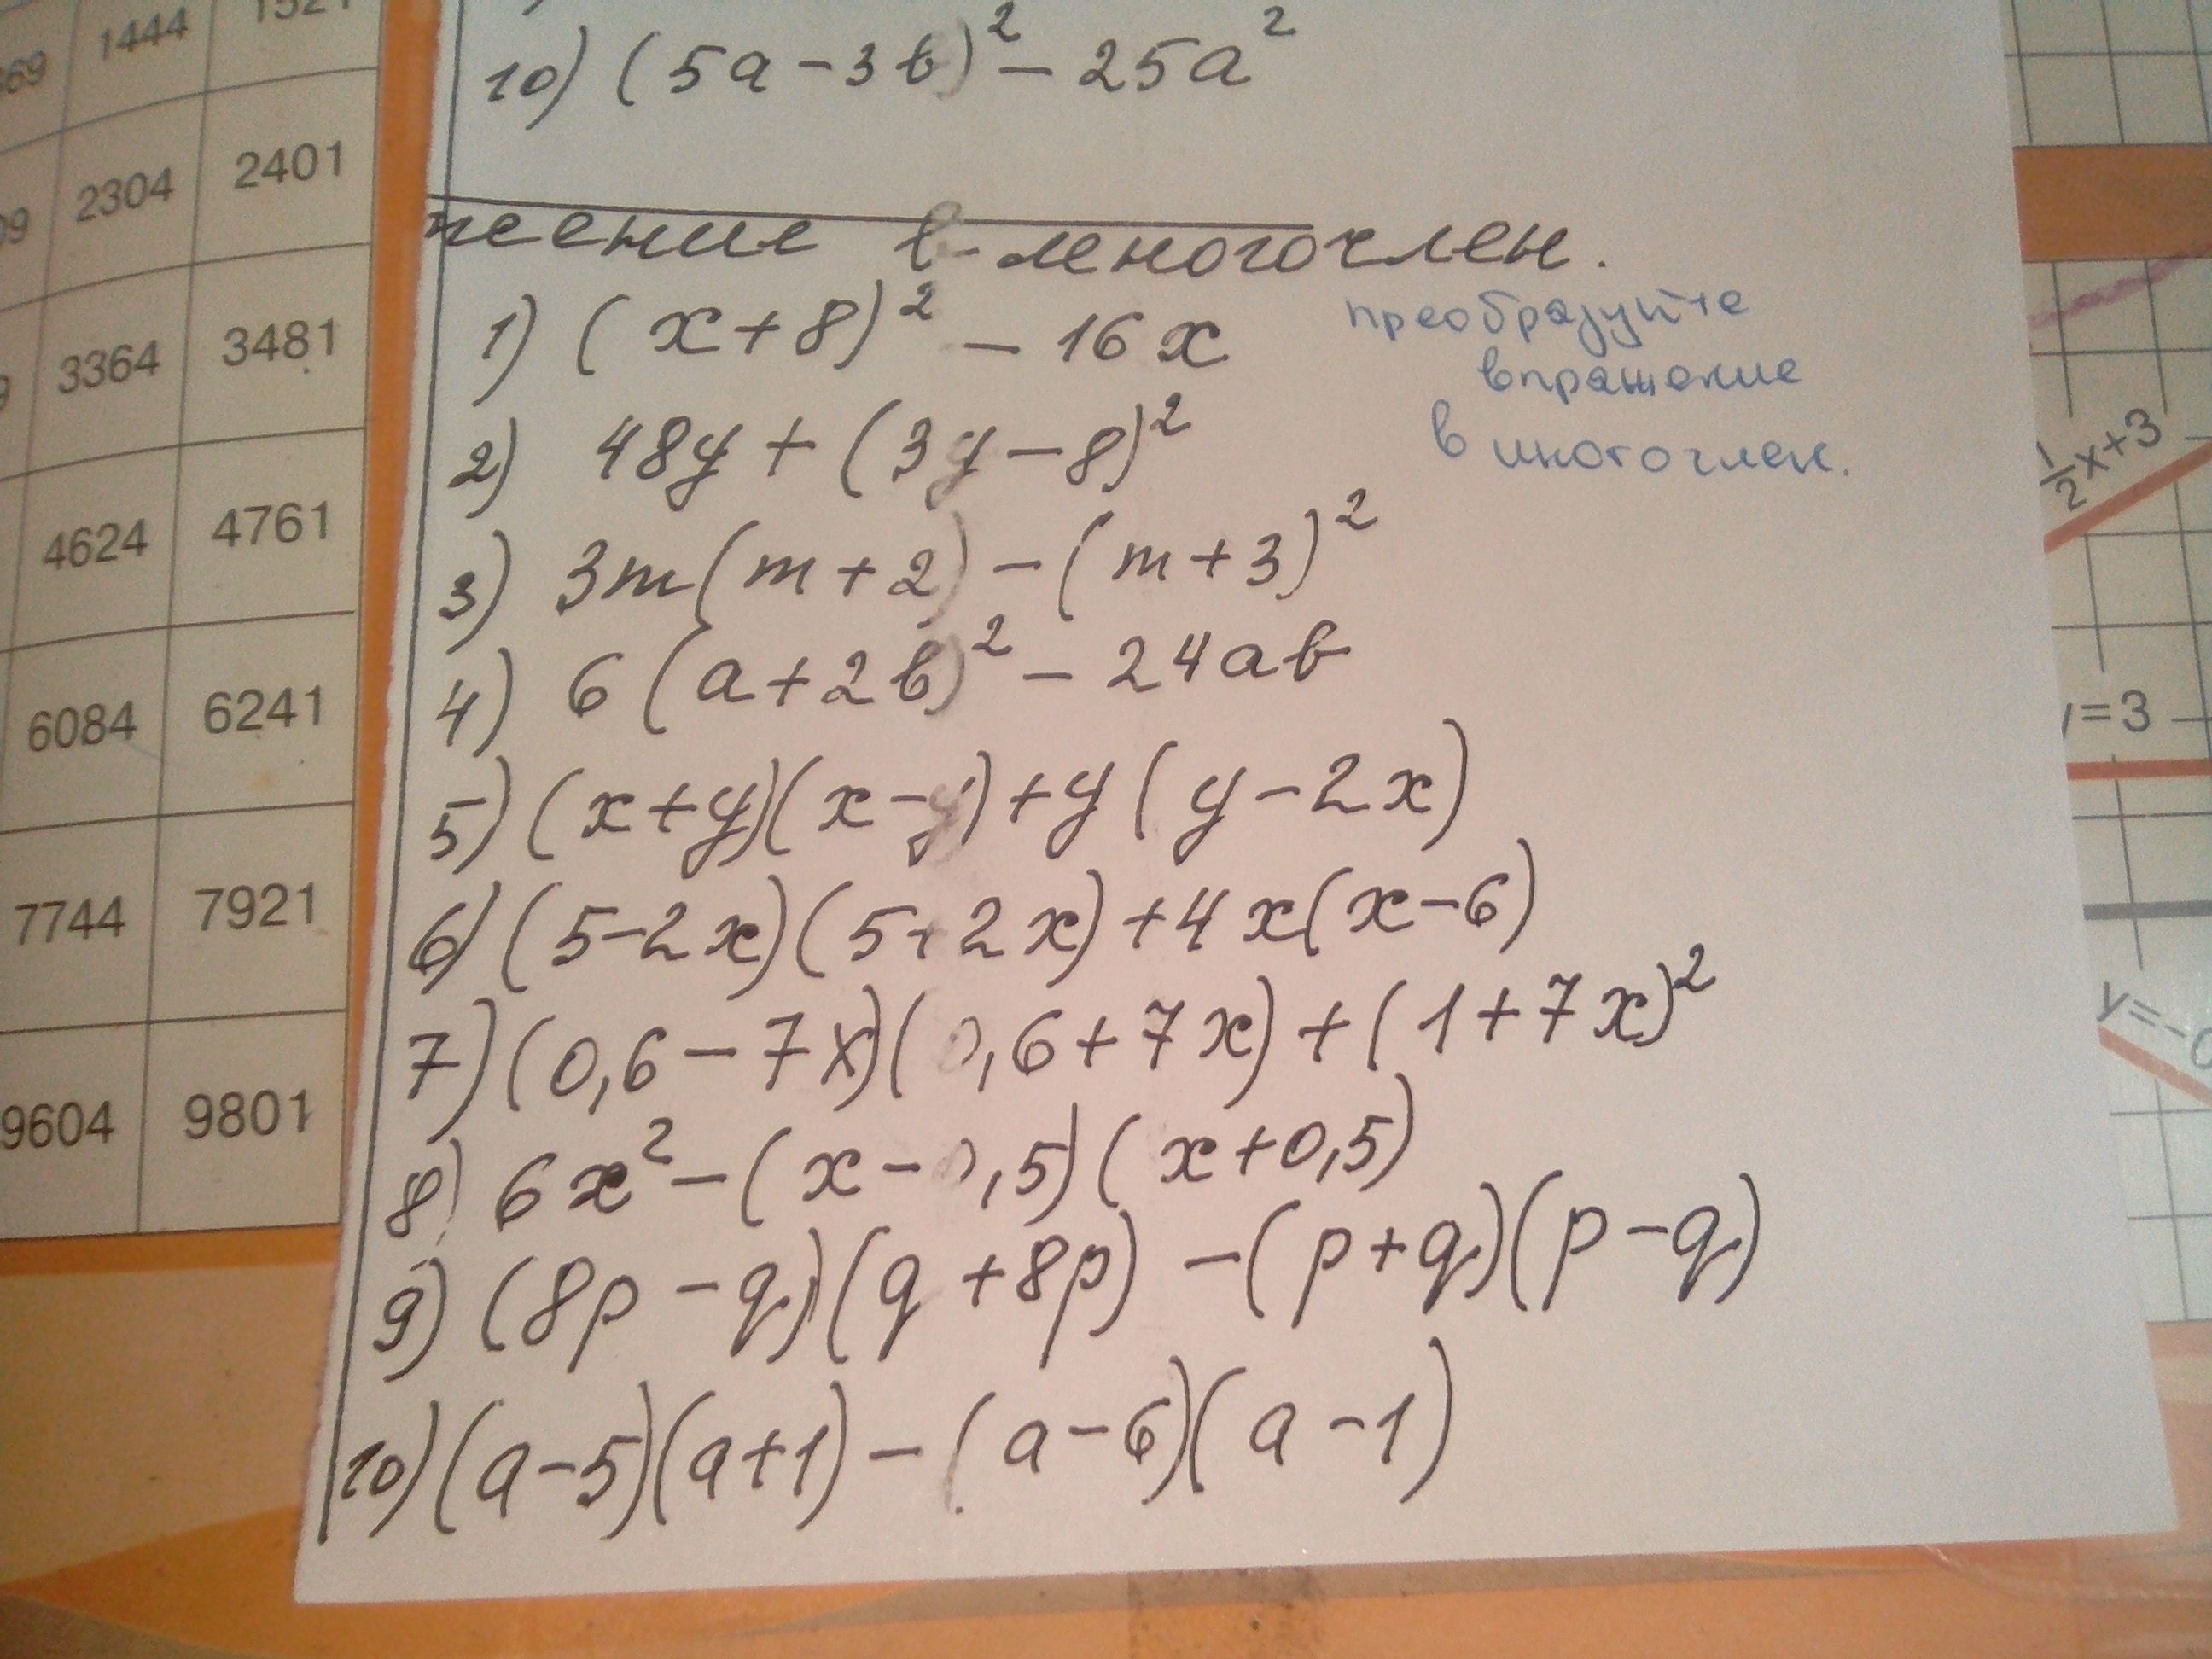 10) (5a-3b)² - 25a²
жение в многочлен.
1) (x+8)² - 16x
преобразуйте
впражение
в многочлен.
2) 48y + (3y-8)²
3) 3m(m+2) - (m+3)²
4) 6(a+2b)² - 24ab
5) (x+y)(x-y)+y(y-2x)
6) (5-2x)(5+2x)+4x(x-6)
7) (0,6-7x)(0,6+7x)+(1+7x)²
8) 6x²-(x-0,5)(x+0,5)
9) (8p-q)(q+8p)-(p+q)(p-q)
10) (a-5)(a+1)-(a-6)(a-1)
1444
2304 2401
3364 3481
4624 4761
6084 6241
7744 7921
9604 9801
1/2x+3
y=3